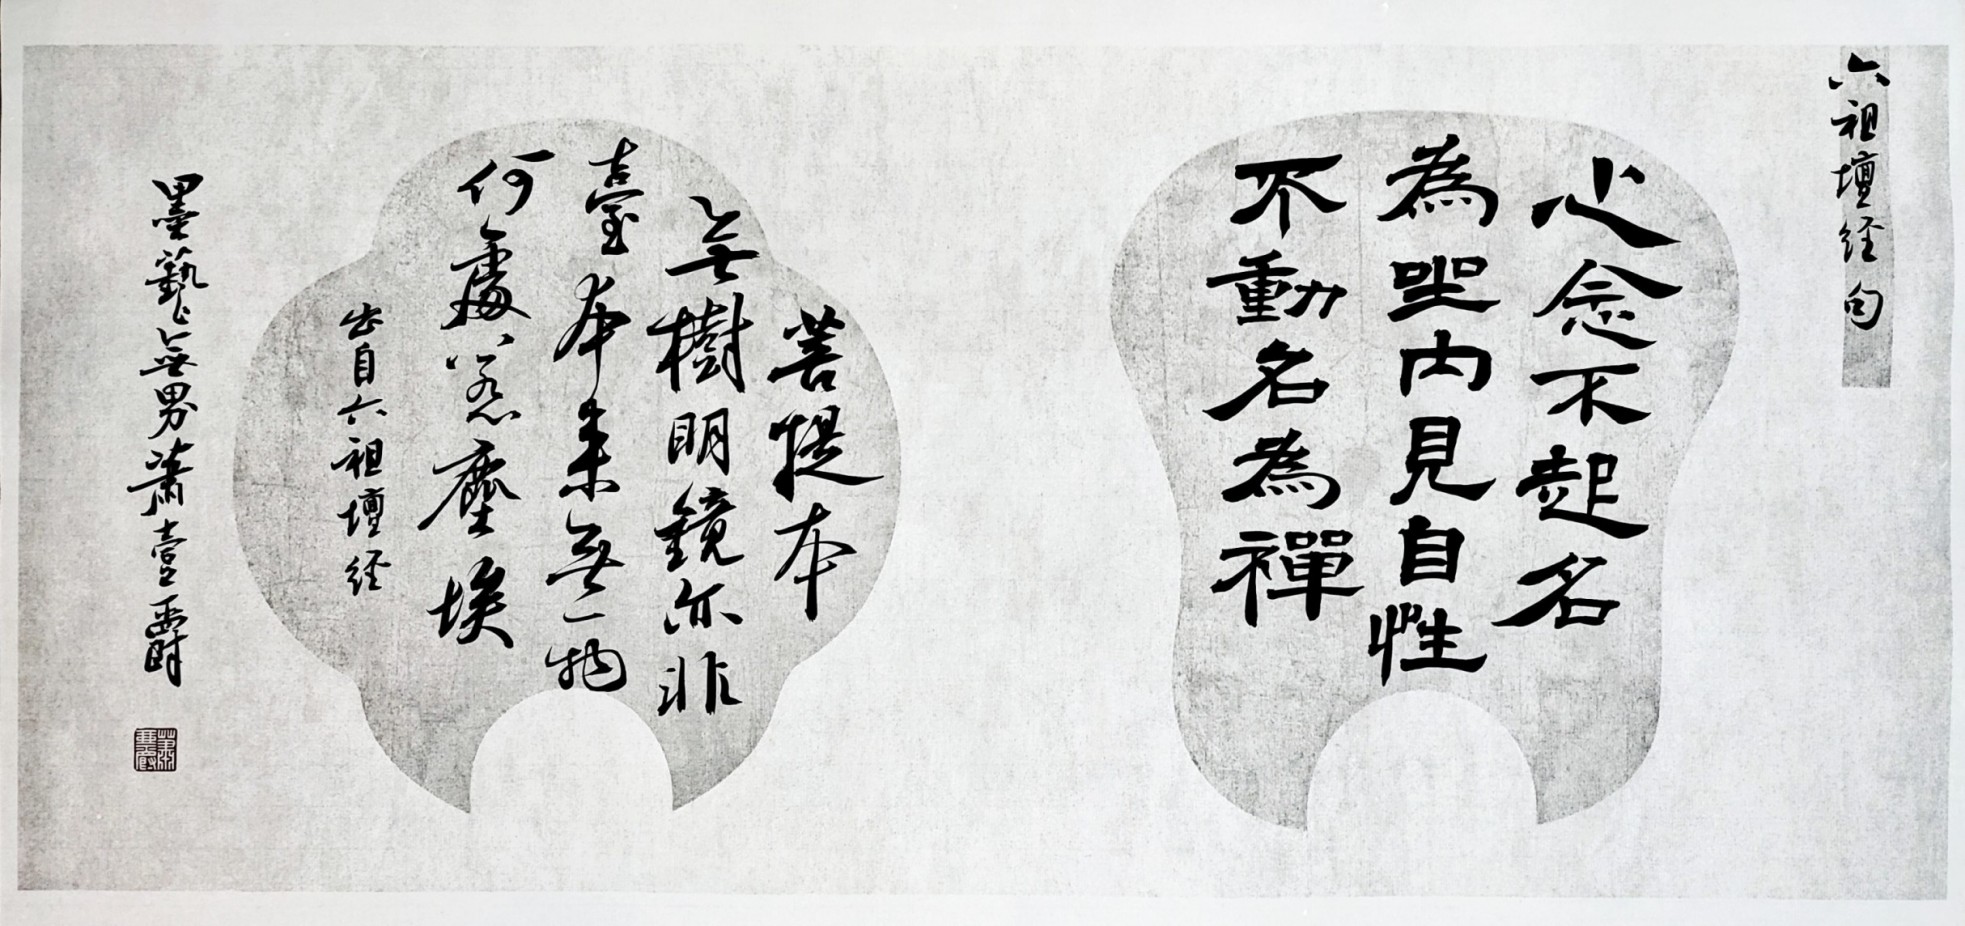 六祖壇经句
心念不起名
為坐内見自性
不動名為禪
菩提本
無樹明鏡亦非
臺本來無一物
何處惹塵埃
出自六祖壇经
墨藝無界蕭壹爵